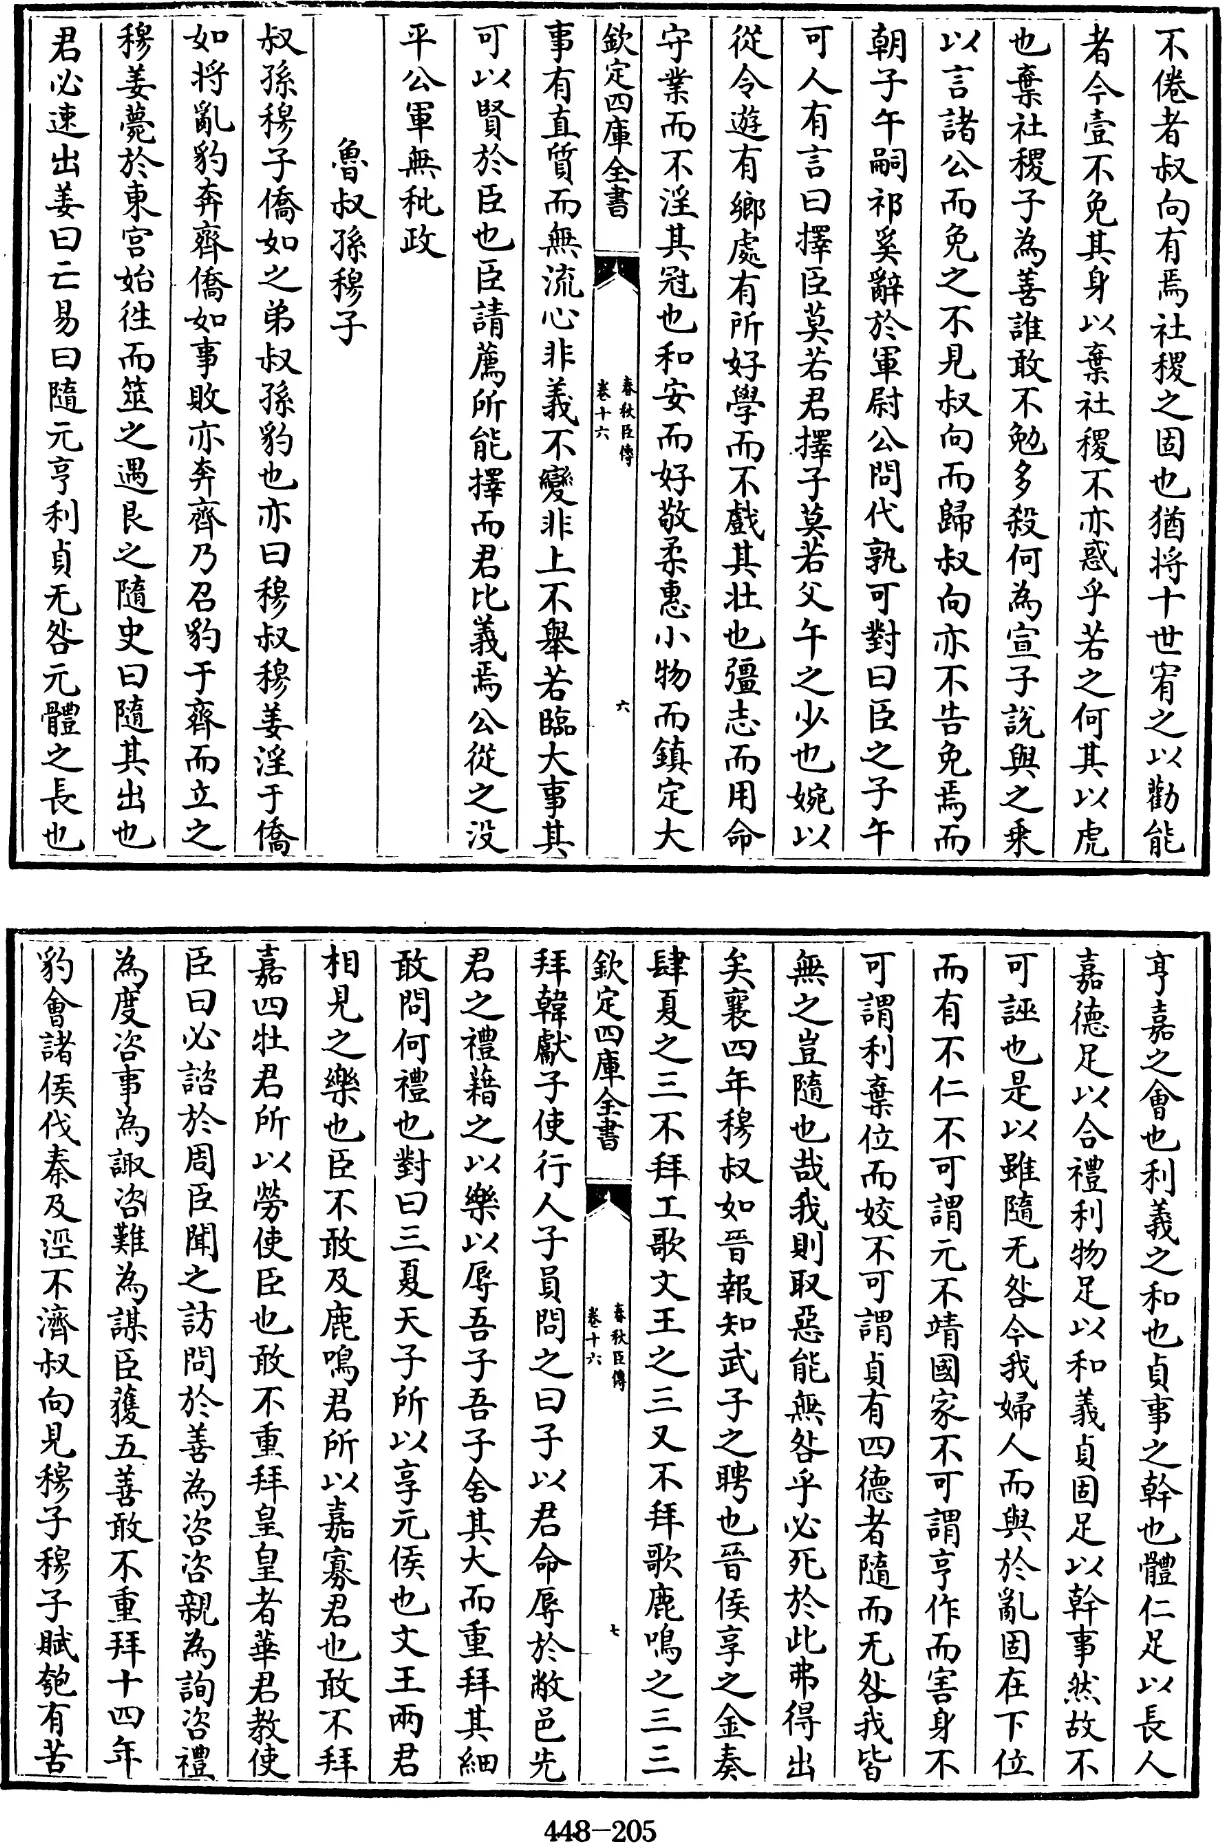 不倦者叔向有焉社稷之固也猶將十世宥之以勸能
者今壹不免其身以棄社稷不亦惑乎若之何其以虎
也棄社稷子為善誰敢不勉多殺何為宣子說與之乘
以言諸公而免之不見叔向而歸叔向亦不告免焉而
朝子午嗣祁奚辭於軍尉公問代孰可對曰臣之子午
可人有言曰擇臣莫若君擇子莫若父午之少也婉以
從令遊有鄉處有所好學而不戲其壯也彊志而用命
守業而不淫其冠也和安而好敬柔惠小物而鎮定大
欽定四庫全書
春秋臣傳
卷十六
六
事有直質而無流心非義不變非上不舉若臨大事其
可以賢於臣也臣請薦所能擇而君比義焉公從之没
平公軍無秕政
魯叔孫穆子
叔孫穆子僑如之弟叔孫豹也亦曰穆叔穆姜淫于僑
如將亂豹奔齊僑如事敗亦奔齊乃召豹于齊而立之
穆姜薨於東宫始徃而筮之遇艮之隨史曰隨其出也
君必速出姜曰亡易曰隨元亨利貞无咎元體之長也
亨嘉之會也利義之和也貞事之幹也體仁足以長人
嘉德足以合禮利物足以和義貞固足以幹事然故不
可誣也是以雖隨无咎今我婦人而與於亂固在下位
而有不仁不可謂元不靖國家不可謂亨作而害身不
可謂利棄位而姣不可謂貞有四德者隨而无咎我皆
無之豈隨也哉我則取惡能無咎乎必死於此弗得出
矣襄四年穆叔如晉報知武子之聘也晉侯享之金奏
肆夏之三不拜工歌文王之三又不拜歌鹿鳴之三三
欽定四庫全書
春秋臣傳
卷十六
七
拜韓獻子使行人子員問之曰子以君命辱於敝邑先
君之禮藉之以樂以辱吾子吾子舍其大而重拜其細
敢問何禮也對曰三夏天子所以享元侯也文王兩君
相見之樂也臣不敢及鹿鳴君所以嘉寡君也敢不拜
嘉四牡君所以勞使臣也敢不重拜皇皇者華君教使
臣曰必諮於周臣聞之訪問於善為咨咨親為詢咨禮
為度咨事為諏咨難為謀臣獲五善敢不重拜十四年
豹會諸侯伐秦及涇不濟叔向見穆子穆子賦匏有苦
448-205